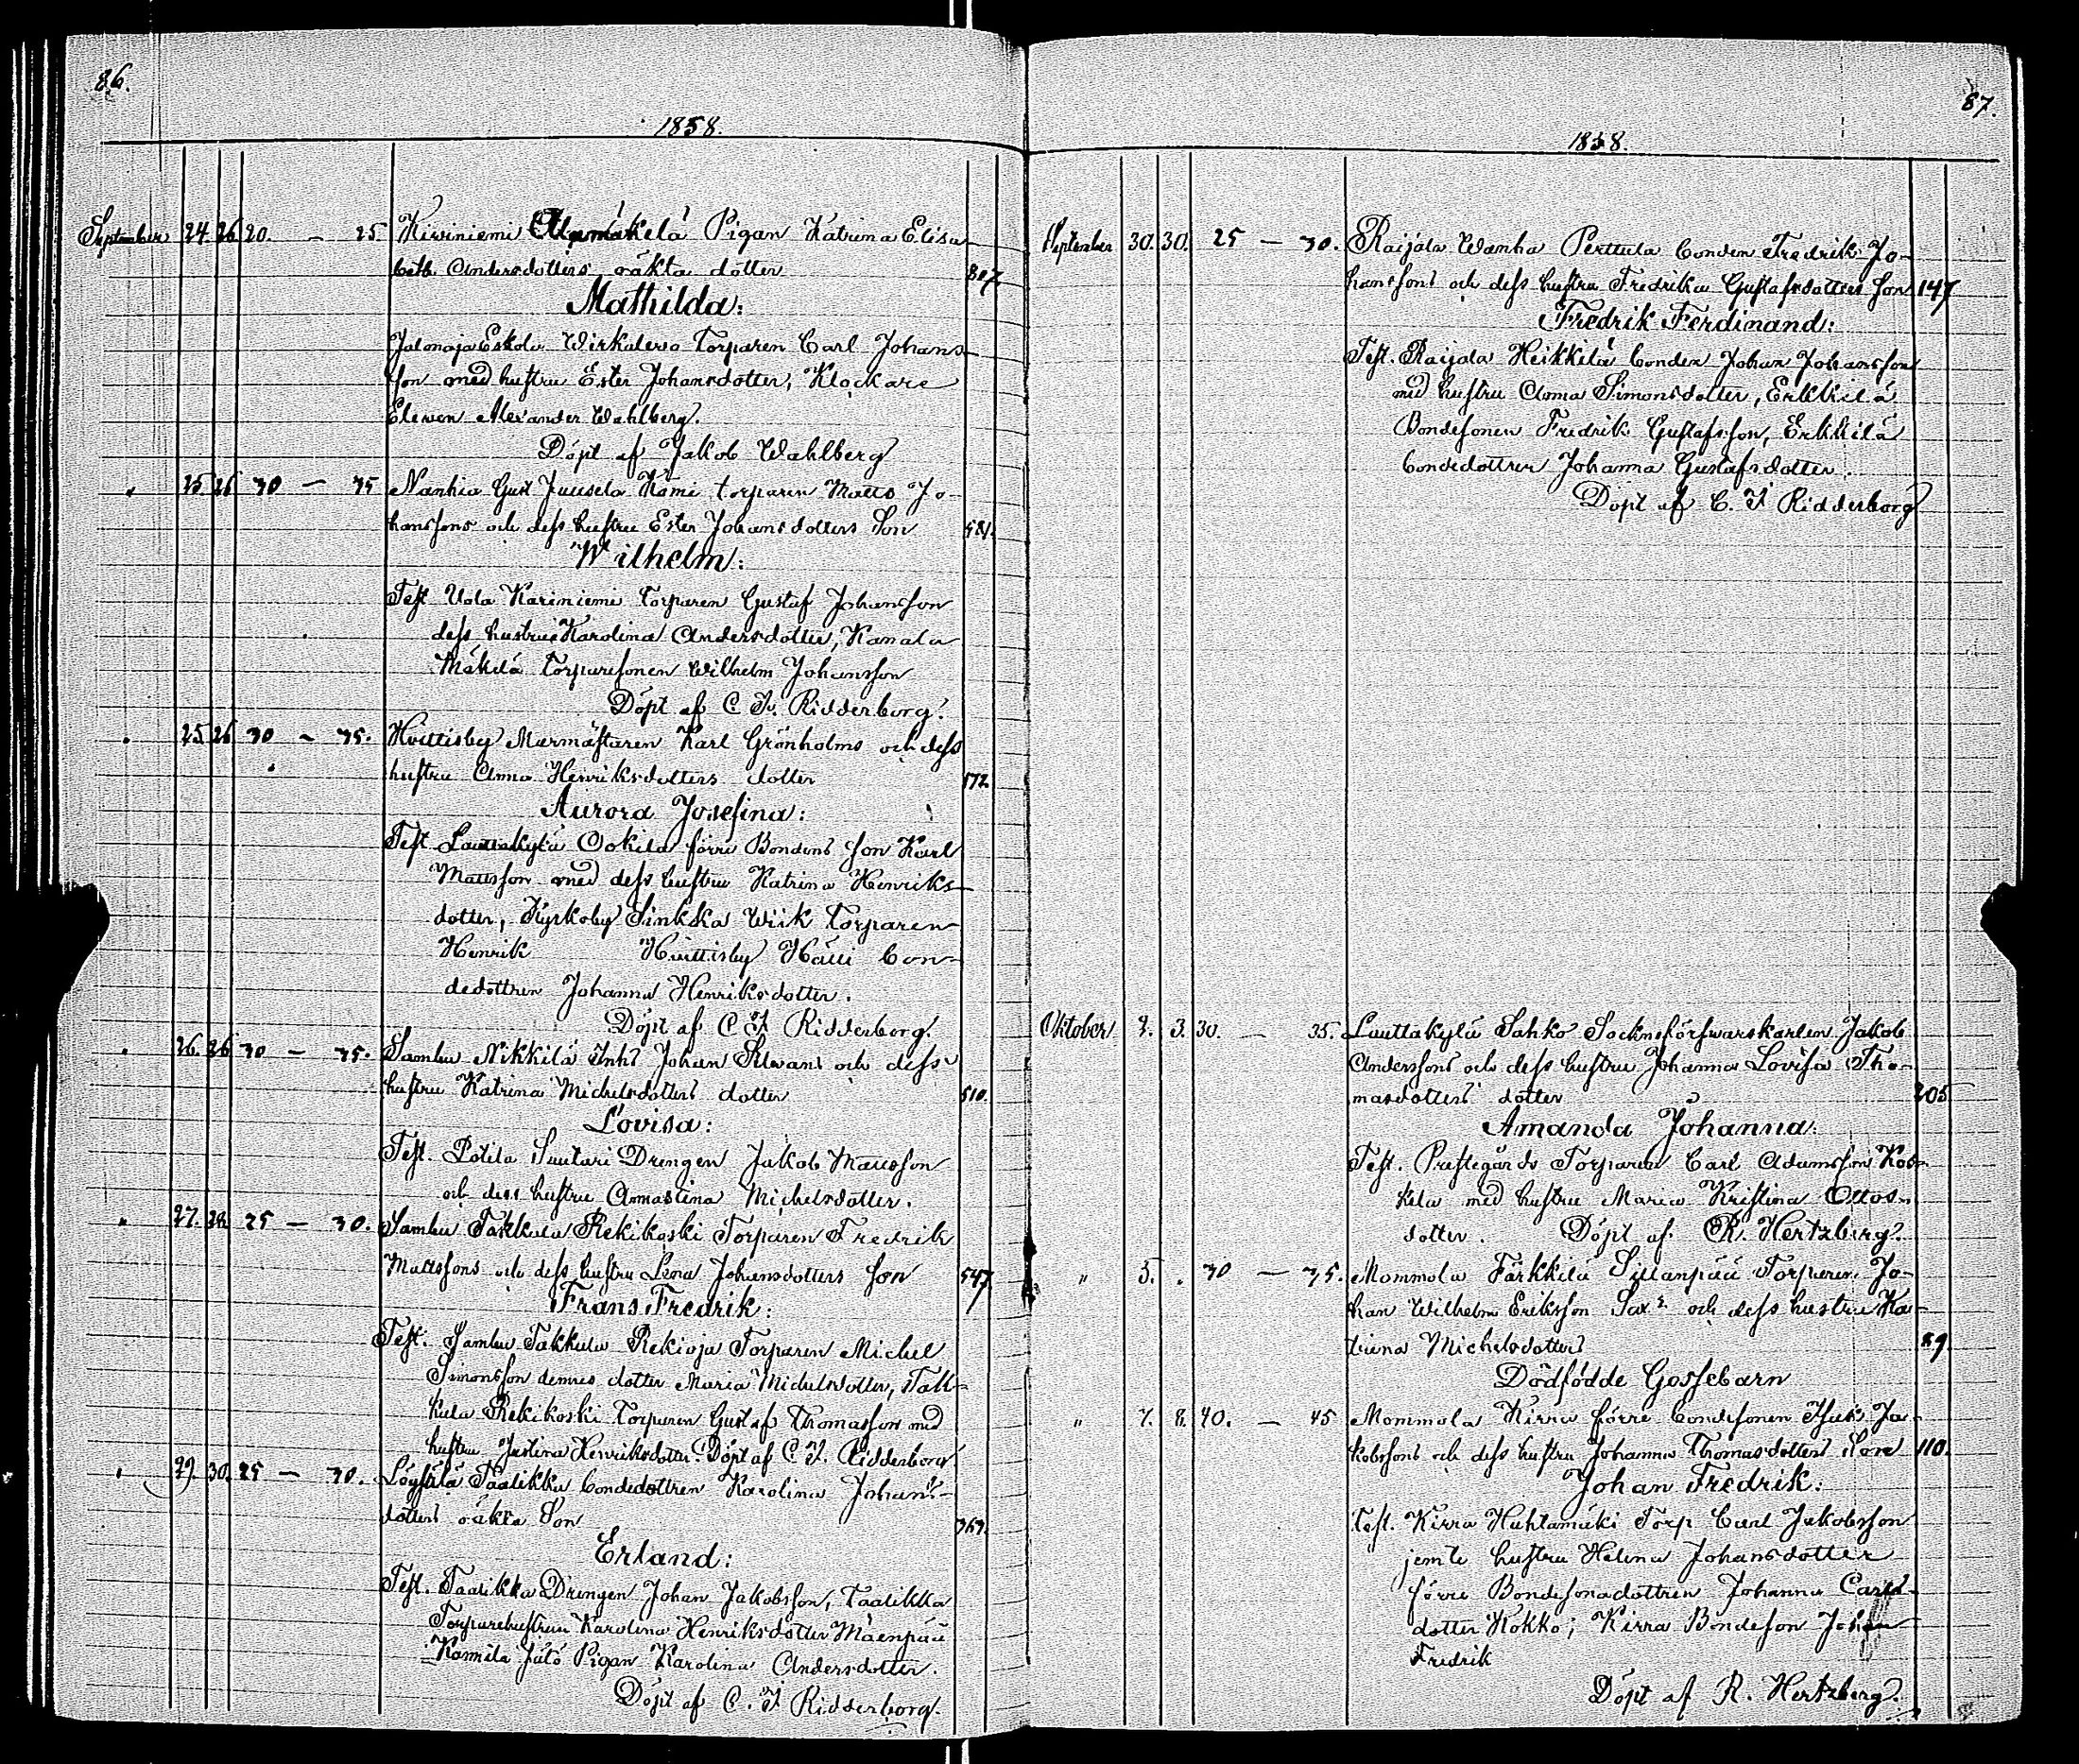 86.
1858.
September 24. 26 20. — 25 Kiviniemi Alamäkelä Pigan Katrina Elisa-
beth Andersdotters oäkta dotter 307.
Mathilda:
Jalonoja Eskola Wirkalewo Torparen Carl Johans-
son med hustru Ester Johansdotter, Klockare
Elewen Alexander Wahlberg.
Döpt af Jakob Wahlberg
" 25 26 30 — 35 Nanhia Gust Juusela Kömi torparen Matts Jo-
hanssons och dess hustru Ester Johansdotters Son 581.
Wilhelm:
Test Uola Kariniemi torparen Gustaf Johansson
dess hustru Karolina Andersdotter, Kanala
Mäkelä Torparesonen Wilhelm Johansson
Döpt af C F. Ridderborg.
" 25 26 30 — 35. Huittisby Murmästaren Karl Grönholms och dess
hustru Anna Henriksdotters dotter 572.
Aurora Josefina:
Test. Lauttakylä Ookila förre Bondens son Karl
Mattsson med dess hustru Katrina Henriks-
dotter, Kyrkoby Sinkka Wiik Torparen
Henrik Huittisby Häui bon-
dedottren Johanna Henriksdotter.
Döpt af C F Ridderborg.
" 26. 26 30 — 35. Sambu Nikkilä Inhs Johan Sklwans och dess
hustru Katrina Michelsdotters dotter 510.
Lovisa:
Test. Potila Suutari Drengen Jakob Mattsson
och dess hustru Annastina Michelsdotter.
" 27. 28. 25 — 30. Sambu Takkula Rekikoski Torparen Fredrik
Mattssons och dess hustru Lena Johansdotters son 547.
Frans Fredrik:
Test. Sambu Takkula Rekioja Torparen Michel
Simonsson dennes dotter Maria Michelsdotter, Tak-
kula Rekikoski torparen Gustaf Thomasson med
hustru Justina Henriksdotter. Döpt af C F. Ridderborg
" 29. 30. 25 — 30. Löysälä Taatikka bondedottren Karolina Johans-
dotters oäkta Son 367.
Erland:
Test. Taatikka Drengen Johan Jakobsson, Taatikka
Torparehustrun Karolina Henriksdotter Mäenpää
Kamila Jätö Pigan Karolina Andersdotter.
Döpt af C. F Ridderborg.
87.
1858.
September 30. 30. 25 — 30. Raijala Wanha Perttula bonden Fredrik Jo-
hanssons och dess hustru Fredrika Gustafsdotters son 147
Fredrik Ferdinand:
Test. Raijala Heikkilä bonden Johan Johansson
med hustru Anna Simonsdotter, Erkkilä
Bondesonen Fredrik Gustafsson, Erkkilä
bondedottren Johanna Gustafsdotter.
Döpt af C. F Ridderborg
Oktober 2. 3. 30. — 35. Lauttakylä Sahko Sockneförswarskarlen Jakob
Anderssons och dess hustru Johanna Lovisa Tho-
masdotters dotter 205
Amanda Johanna:
Test. Prestegårds Torparen Carl Adamsson Kos-
kela med hustru Maria Kristina Ottos-
dotter. Döpt af R. Hertzberg.
" 5. . 30 — 35. Mommola Färkkilä Sillanpää Torparen Jo-
han Wilhelm Eriksson Sax? och dess hustru Ka-
trina Michelsdotters 89.
Dödfödde Gossebarn
" 7. 8. 40. — 45 Mommola Kirra förre bondesonen Isak Ja-
kobssons och dess hustru Johanna Thomasdotters Son 110.
Johan Fredrik:
Test. Kirra Huhtamäki Torp Carl Jakobsson
jemte hustru Helena Johansdotter
förre Bondesonadottren Johanna Carls-
dotter Kokko; Kirra Bondeson Johan
Fredrik
Döpt af R. Hertzberg.